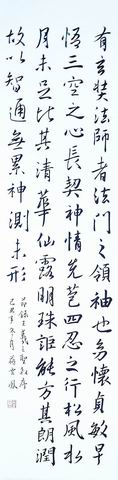 有玄奘法師者法門之領袖也幼懷貞敏早
悟三空之心長契神情先苞四忍之行松風水
月未足比其清華仙露明珠詎能方其朗潤
故以智通無累神測未形
節錄王羲之聖教序
己丑年冬月蔣雲鳳